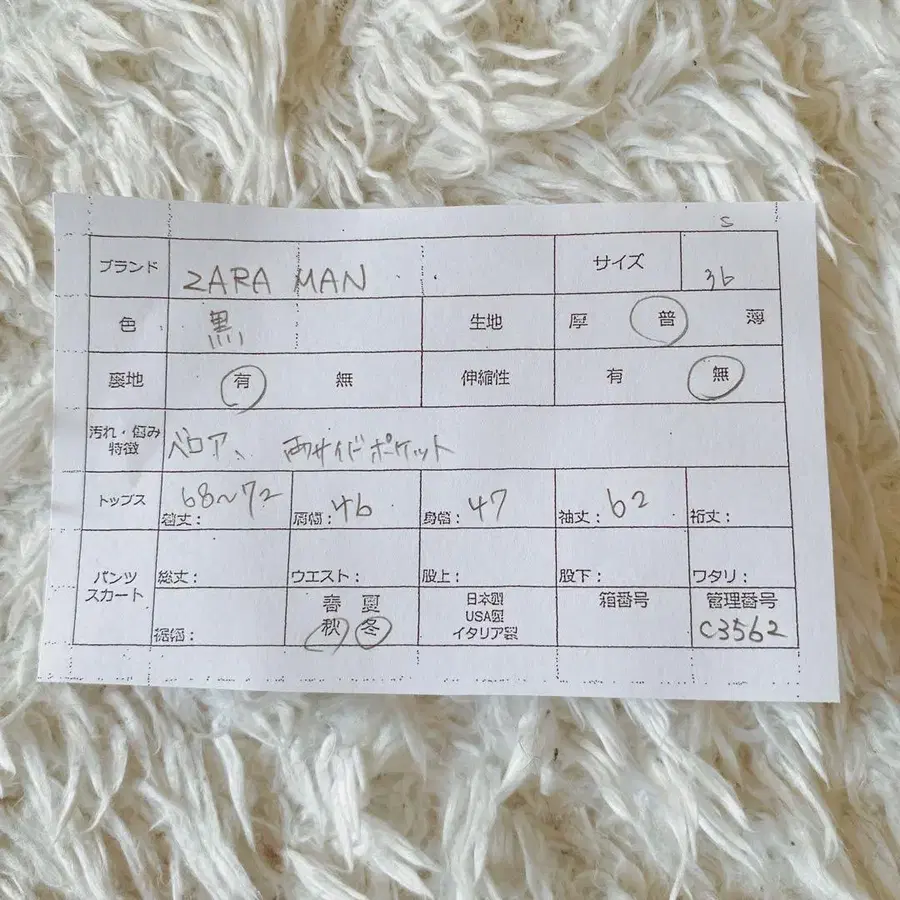 S
ブランド ZARA MAN サイズ 36
色 黒 生地 厚 普 薄
裏地 有 無 伸縮性 有 無
汚れ・傷み
特徴 ベロア、両サイドポケット
トップス 着丈: 68~72 肩幅: 46 身幅: 47 袖丈: 62 裄丈:
パンツ
スカート 総丈: ウエスト: 股上: 股下: ワタリ:
裾幅: 春 夏
秋 冬
日本製
USA製
イタリア製
箱番号
管理番号
C3562